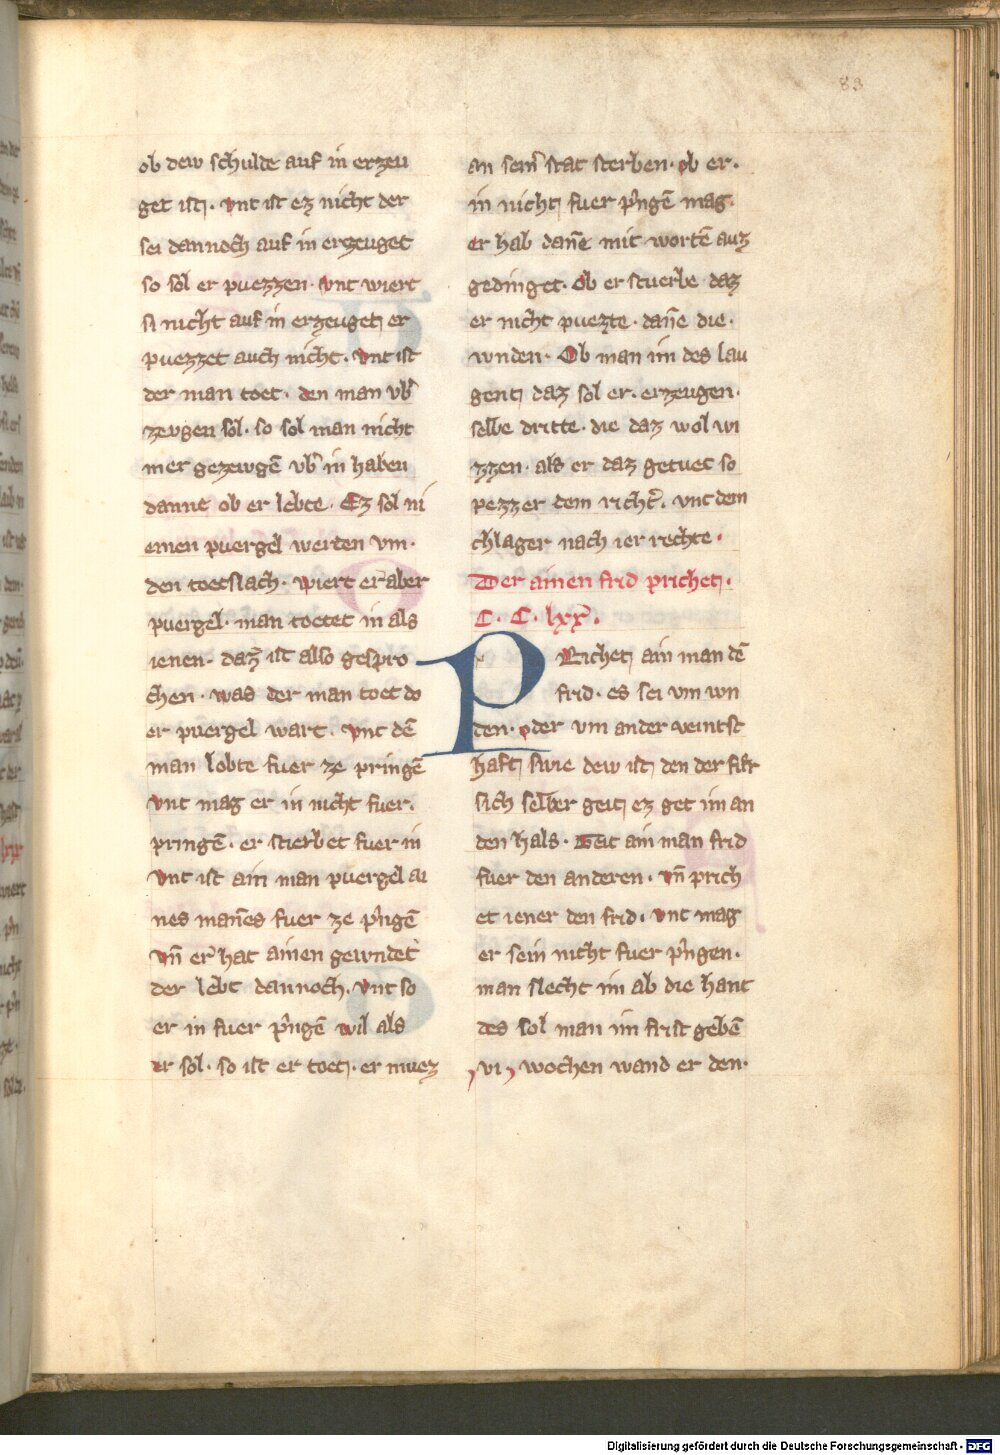 83
ob dew schulde auf in erzeu
get ist. vnt ist ez nicht der
sei dannoch auf in erzeuget
so sol er puezzen. vnt wiert
si nicht auf in erzeuget er
puezzet auch nicht. vnt ist
der man toet. den man vb̾
zevgen sol. so sol man nicht
mer gezewgē vb̾ in haben
danne ob er lebte. Ez sol ni
emen puergel werden vm.
den toetslach. wiert er aber
puergel. man toetet in als
ienen. daz ist also gespro
chen. was der man toet do
er puergel wart. vnt dē
man lobte fuer ze pringē
vnt mag er in nicht fuer.
pringē. er stierbet fuer in
vnt ist ain man puergel ai
nes man̄es fuer ze p̾ngē
vn̄ er hat ainen gewndet
der lebt dannoch. vnt so
er in fuer p̾ngē wil als
er sol. so ist er toet. er muez
an sein̾ stat sterben. ob er.
in nicht fuer p̾ngē mag.
er hab dan̄e mit wortē auz
gedinget. Ob er stuerbe daz
er nicht puezte. dan̄e die.
wnden. Ob man im des lau
gent daz sol er. erzeugen.
selbe dritte. die daz wol wi
zzen. als er daz getuet so
pezzer dem richt̾. vnt dem
chlager nach ier rechte.
Der ainen frid prichet.
C. C. lxx.
PRichet ain man dē
frid. es sei vm wn
den. oder vm ander veintst
haft swie dew ist den der fist
sich selber geit ez get im an
den hals. Geit ain man frid
fuer den anderen. vn̄ prich
et iener den frid. vnt mag
er sein nicht fuer p̾ngen.
man slecht im ab die hant
des sol man im frist gebē
vi wochen wand er den.
Digitalisierung gefördert durch die Deutsche Forschungsgemeinschaft - DFG